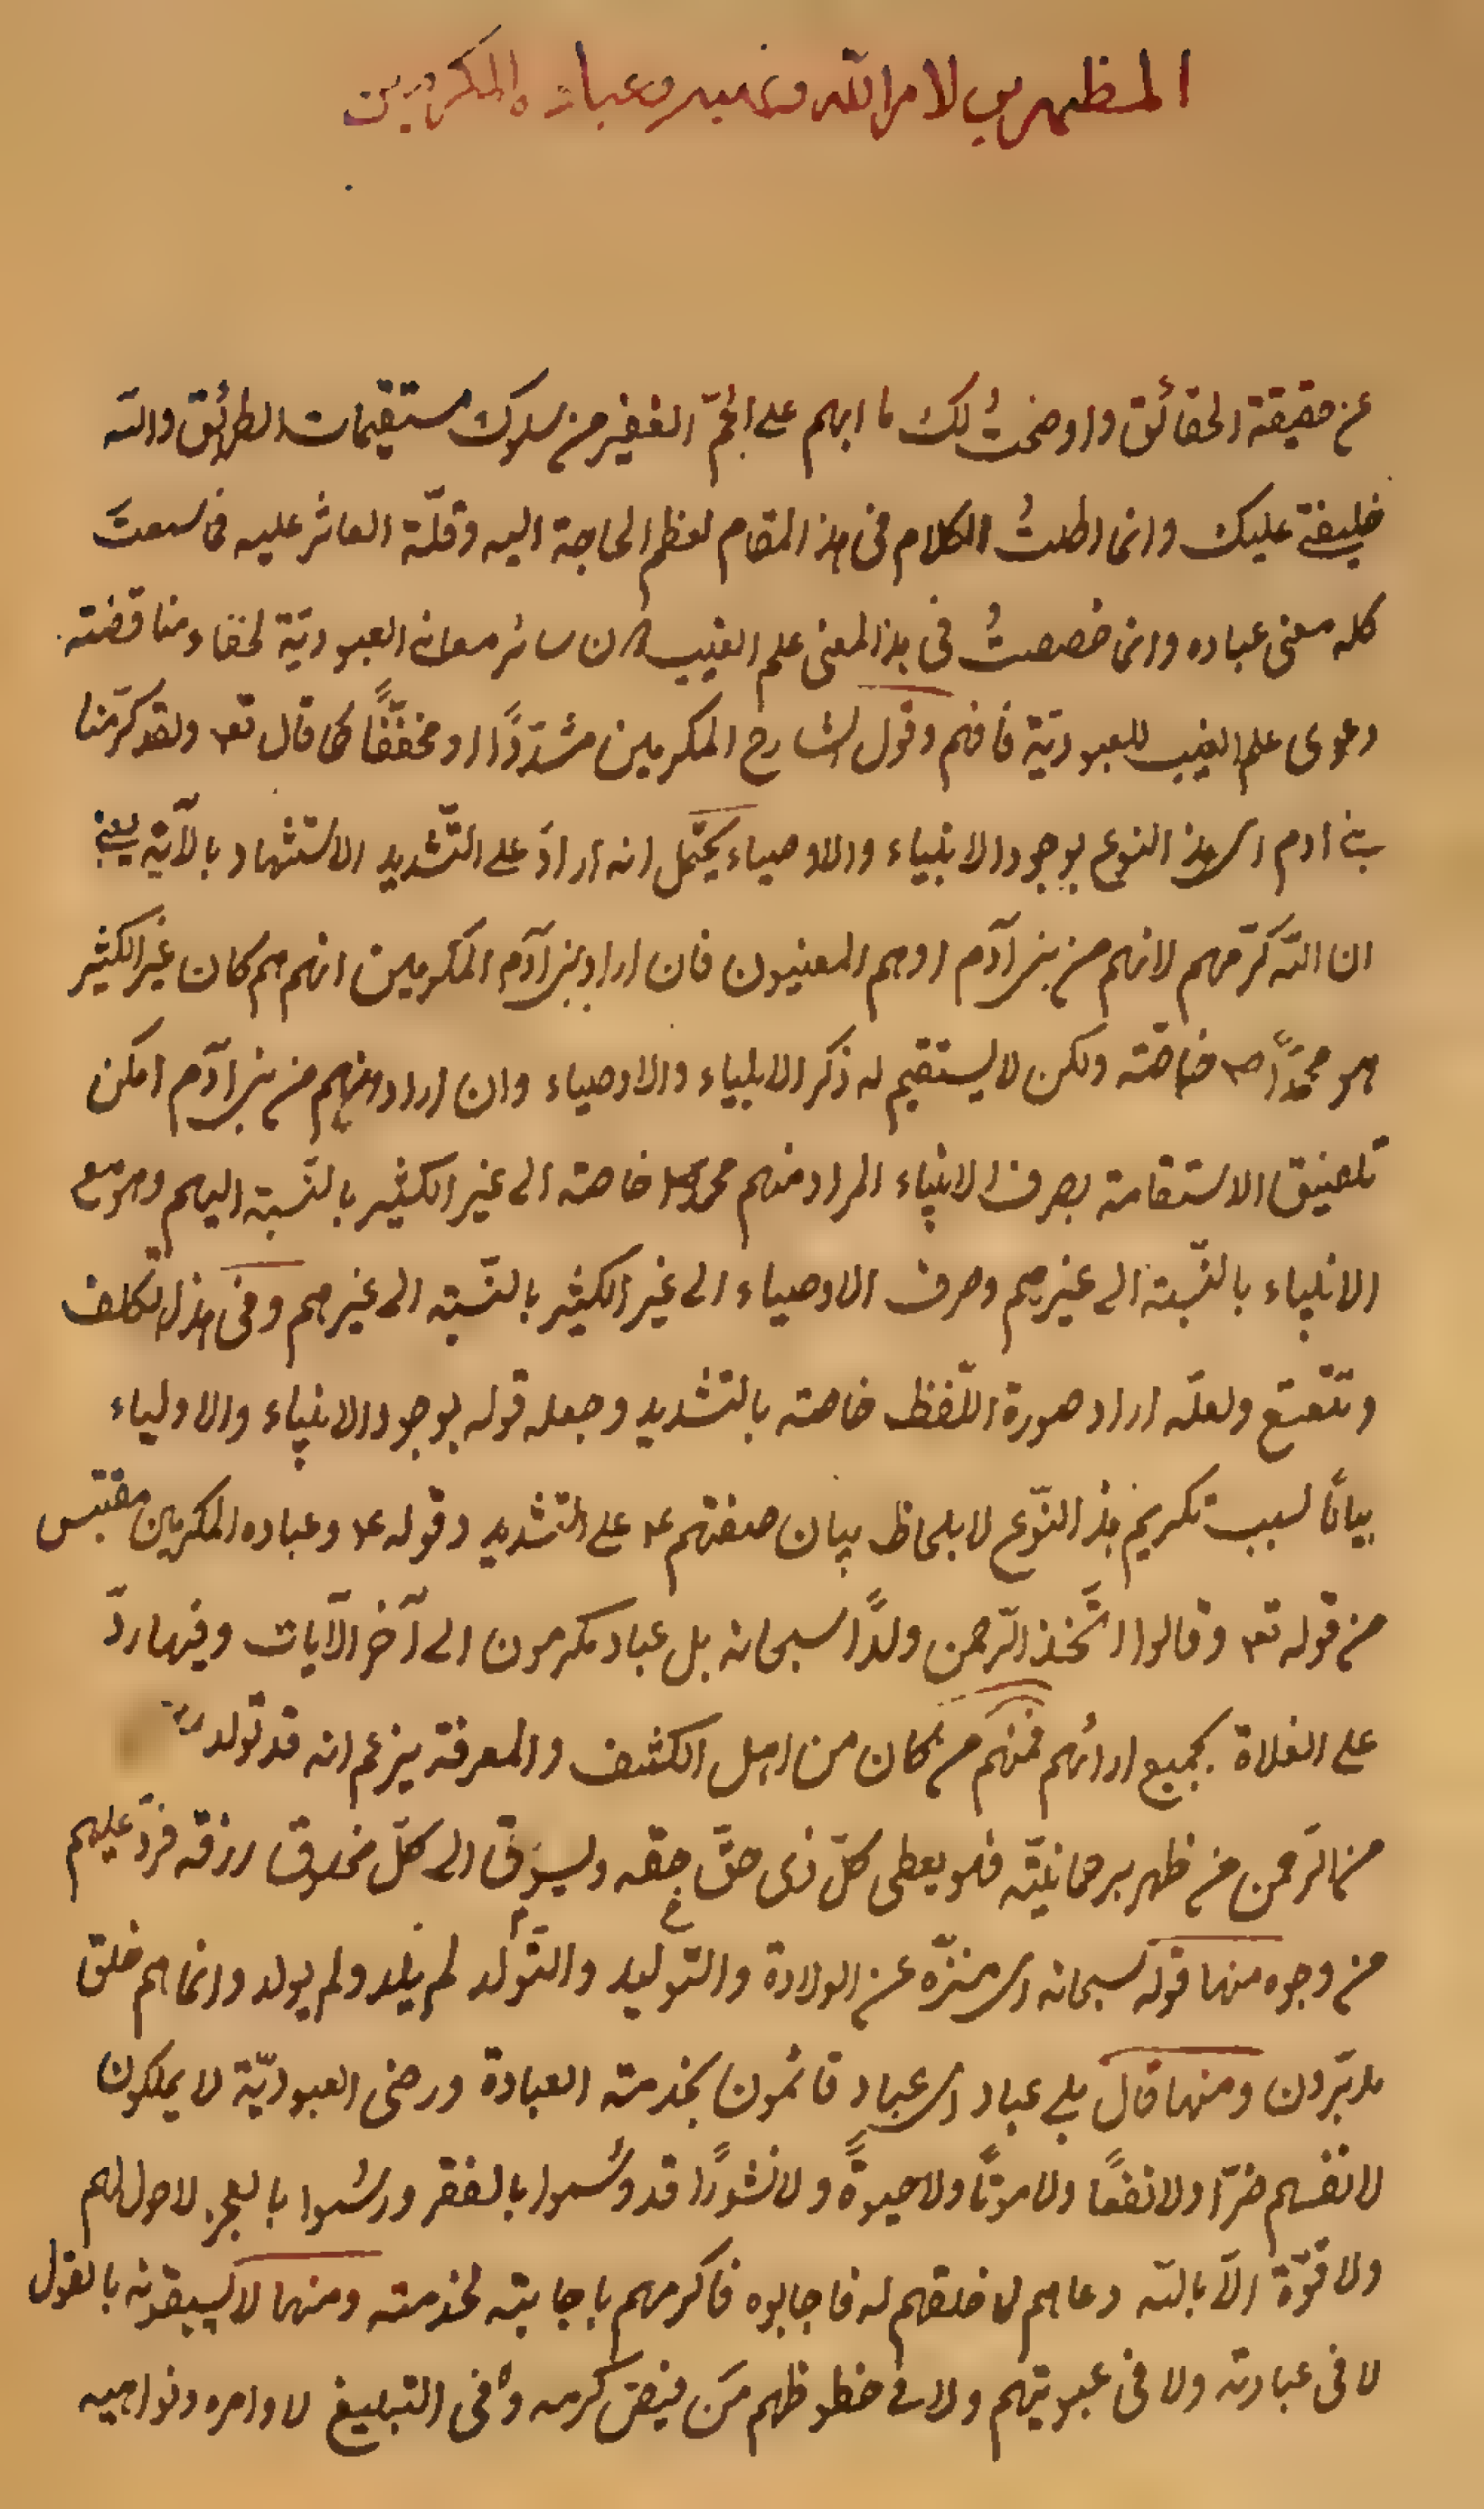 المظهرين لامر الله ونهيه وعباده المكرمين
عن حقيقة الحقائق واوضحتُ لك ما ابهم على الجمّ الغفير من سلوك مستقيمات الطرائق والله
خليفتي عليك وانما اطلتُ الكلام في هذا المقام لعظم الحاجة اليه وقلّة العاثر عليه فاسمعت
كله معنى عباده وانما خصصتُ في هذا المعنى علم الغيب من سائر معاني العبوديّة لخفاء مناقضته
دعوى علم الغيب للعبوديّة فافهم وقول الشارح المكرمين مشدّدًا او مخففًّا كما قال تع ولقد كرّمنا
بني ادم اى هذا النوع بوجود الانبياء والاوصياء يحتمل انه ارادَ على التّشديد الاستشهاد بالآية يعني
ان الله كرّمهم لانهم من بنى آدم او هم المعنيون فان اراد ببنى آدم المكرمين انهم هم كان غير الكثير
هو محمّدًا ص خاصّة ولكن لا يستقيم له ذكر الانبياء والاوصياء وان اراد انهم من بنى آدم امكن
تلفيق الاستقامة بصرف الانبياء المراد منهم محمد ص خاصة الى غير الكثير بالنّسبة اليهم وهو مع
الانبياء بالنّسبة الى غيرهم وصرف الاوصياء الى غير الكثير بالنّسبة الى غيرهم وفى هذا تكلف
وتتعتع ولعلّه اراد صورة اللّفظ خاصة بالتشديد وجعله قوله بوجود الانبياء والاولياء
بيانًا لسبب تكريم هذا النّوع لا بلحاظ بيان صفتهم ع على التشديد وقوله ع وعباده المكرمين مقتبس
من قوله تع وقالوا اتّخذ الرّحمن ولدًا سبحانه بل عباد مكرمون الى آخر الآيات وفيها ردّ
على الغلاة بجميع ارائهم فمنهم من كان من اهل الكشف والمعرفة يزعم انه قد تولد
من الرّحمن من ظهر برحمانيّته فهو يعطى كلّ ذى حقّ حقه ويسوق الى كلّ مخلوق رزقه فردّ عليهم
من وجوه منها قوله سبحانه اى منزّه عن الولادة والتوليد والتّولّد لم يلد ولم يولد وانما هم خلق
مدبّرون ومنها قال بل عباد اى عباد قائمون بخدمته العبادة ورضى العبوديّة لا يملكون
لانفسهم ضرًّا ولا نفعًا ولا موتًا ولا حيوةً ولا نشورًا قد وُسموا بالفقر ورسُموا بالعجز لا حول لهم
ولا قوّة الّا بالله دعاهم لما خلقهم له فاجابوه فاكرمهم باجابته لخدمته ومنها لا يسبقونه بالقول
لا فى عبادته ولا فى عبوديتهم ولا فى حظوظهم من فيض كرمه ولا فى التبليغ لاوامره ونواهيه